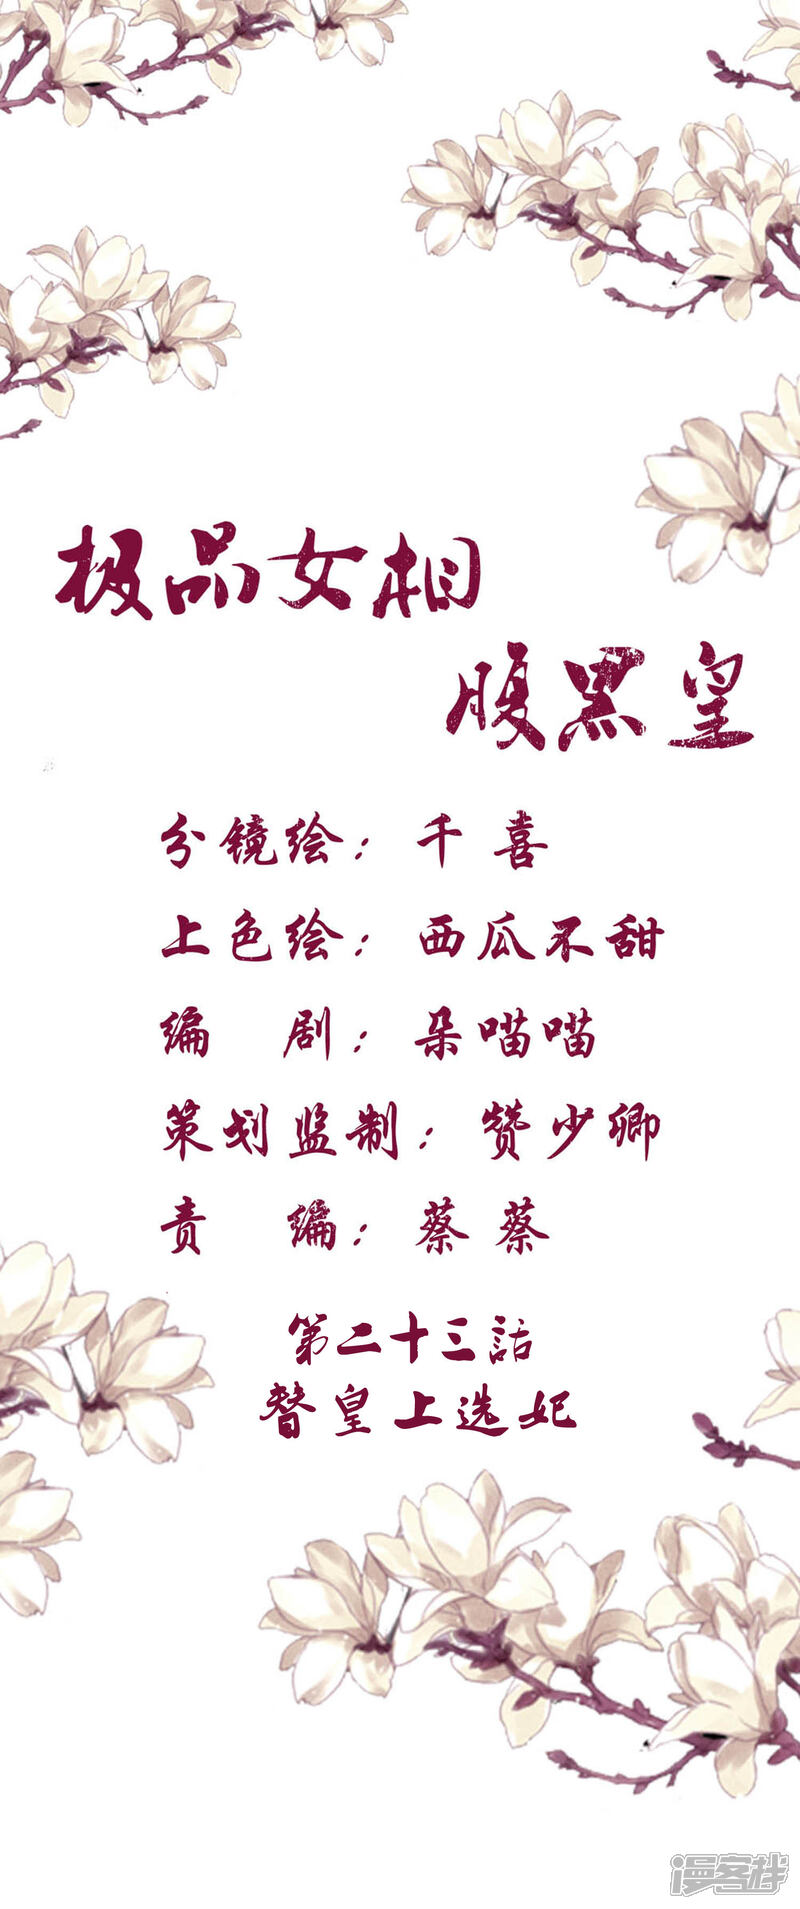 极品女相
腹黑皇
分镜绘：千喜
上色绘：西瓜不甜
编 剧：朵喵喵
策划监制：赞少卿
责 编：蔡蔡
第二十三話
替皇上选妃
漫客栈